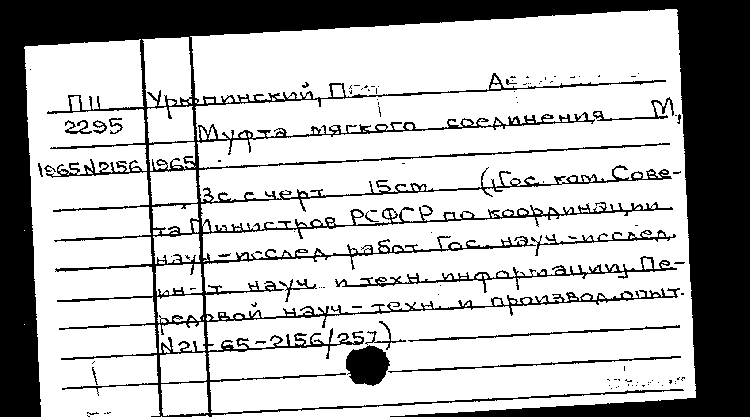 П11 Урюпинский,
2295 Муфта мягкого соединения М,
1965N2156 1965.
3с. с черт 15см. (Гос. ком. Сове-
та Министров РСФСР по координации
науч-исслед. работ. Гос. науч.-исслед.
ин-т науч. и техн. информации. Пе-
редовой науч.-техн. и производ. опыт.
N21-65-2156/257)